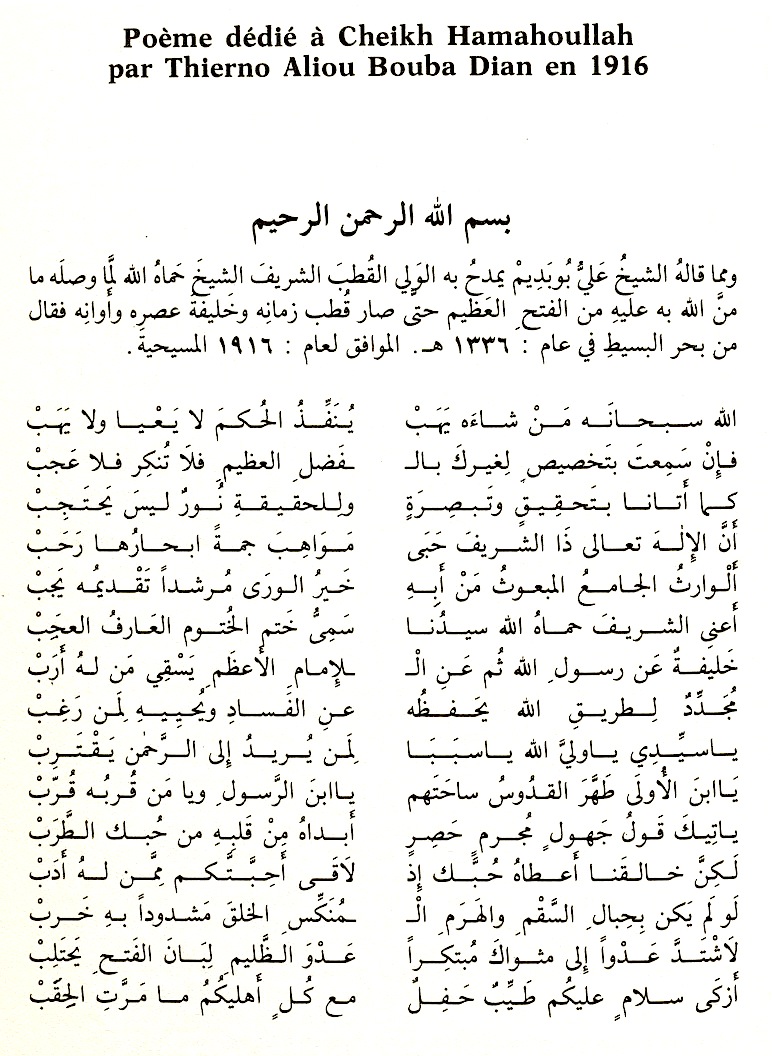 Poème dédié à Cheikh Hamahoullah
par Thierno Aliou Bouba Dian en 1916
بسم الله الرحمن الرحيم
ومما قالهُ الشيخُ عَليُّ بُوبَدِيمْ يمدحُ به الوَلي القُطبَ الشريفَ الشيخَ حَماهُ الله لمَّا وصلَه ما
منَّ الله به عليهِ من الفتح ِ العَظيم حتَّى صار قُطب زمانِه وخَليفةَ عصرِه وأوانِه فقال
من بحر البسيطِ في عام : ١٣٣٦ هـ. الموافق لعام : ١٩١٦ المسيحية .
الله سبحانَه مَنْ شاءَه يَهَبْ يُنَفِّذُ الحُكمَ لا يَعْيا ولا يَهَبْ
فإنْ سَمِعتَ بتَخصيصٍ لِغيركَ بالـ ـفَضلِ العظيمِ فلَا تُنكِر فلا عَجبْ
كما أتانا بتَحقِيقٍ وتَبصِرَةٍ وللحقيقةِ نُورٌ ليسَ يَحتَجِبْ
أنَّ الإلٰهَ تعالى ذَا الشريفَ حَبَى مَوَاهِبَ جمةً ابحارُها رَحَبْ
ألوارثُ الجامعُ المبعوثُ مَنْ أبِهِ خَيرُ الورَى مُرشداً تَقْديمُه يَجبْ
أعنِي الشريفَ حماهُ الله سيدُنا سَمِيُّ ختمِ الخُتومِ العَارفُ العجَبْ
خَليفةٌ عَن رسولِ الله ثُم عَنِ الْـ ـلإمامِ الأعظَمِ يَسْقِي مَن لهُ أرَبْ
مُجَدِّدٌ لِطريقِ الله يَحفظُه عنِ الفَسادِ ويُحْيِيهِ لمن رَغِبْ
ياسيِّدي ياوليَّ الله ياسبَبَا لمَن يُريدُ إلى الرَّحمٰن يَقْتَرِبْ
يَاابنَ الأولَى طَهَّرَ القدُوسُ ساحَتَهم ياابنَ الرَّسولِ ويا مَن قُربُه قُرَبْ
ياتيكَ قَولُ جَهولٍ مُجرمٍ حَصِرٍ أبداهُ مِنْ قَلبِهِ من حُبك الطَّرَبْ
لَكِنَّ خالقَنا أعطاهُ حُبَّك إذ لَاقَى أحِبَّتَكم ممَّن لهُ أدَبْ
لَو لَم يَكن بحِبالِ السَّقْمِ والهَرَمِ الْـ ـمُنَكِّسِ الخلقَ مَشدوداً بهِ خَرِبْ
لَاشْتدَّ عَدْواً إلى مثواكَ مُبتكِراً عَدْوَ الظَّليمِ لِبَانَ الفَتحِ يَحتَلِبْ
أزكَى سلامٍ عليكُم طَيِّبٌ حَفِلٌ مع كُلِّ أهليكُمُ ما مَرَّتِ الحِقَبْ